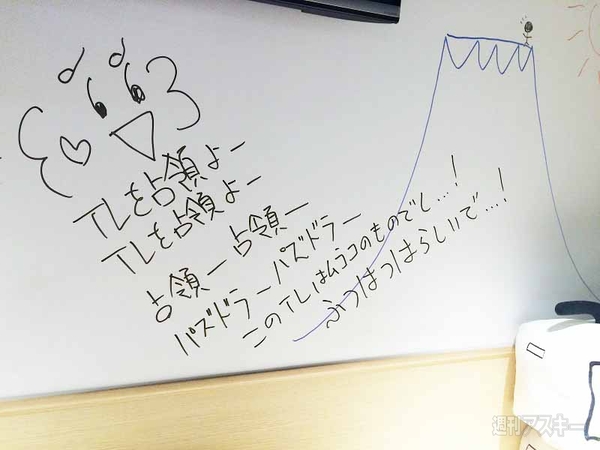 TLを占領よー
TLを占領よー
占領ー占領ー
パズドラーパズドラー
このTLはムラコのものでし…!
ふつはつはらしいで…!
週刊アスキー